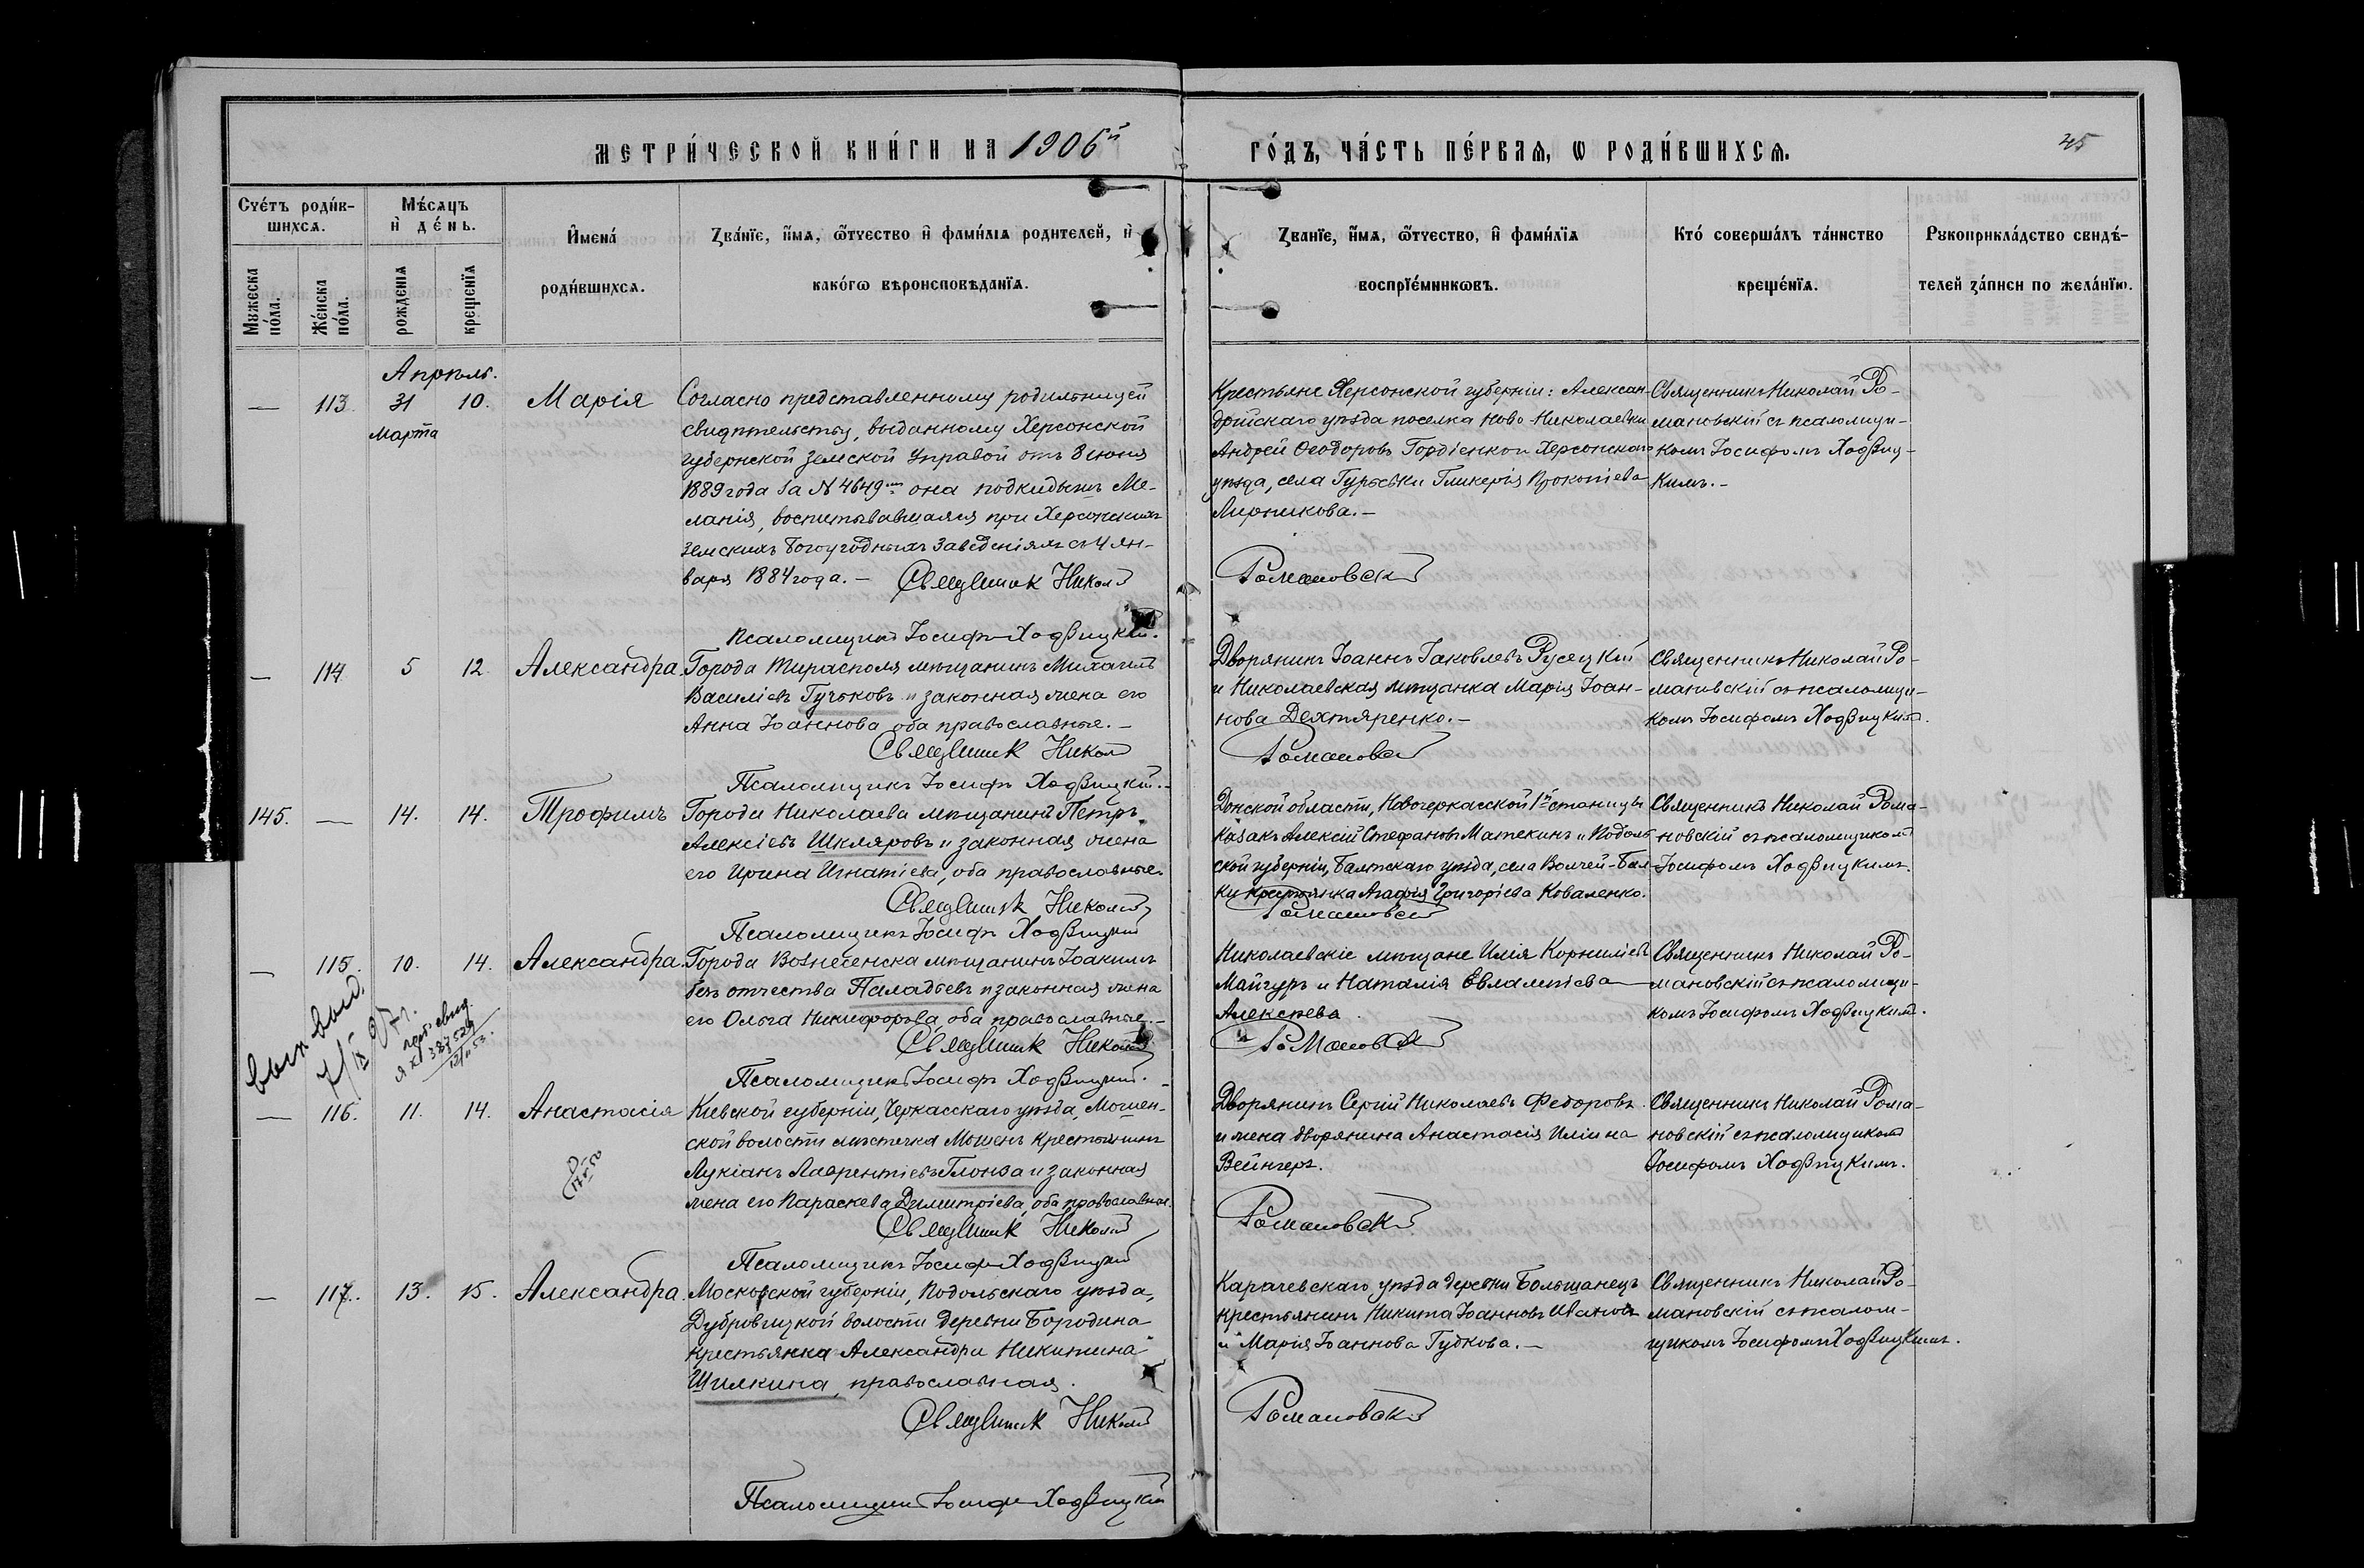 МЕТРИ́ЧЕСКОЙ КНИ́ГИ НА 1906й ГО́ДЪ, ЧА́СТЬ ПЕ́РВАѦ, Ѡ РОДИ́ВШИХСѦ.
45
Счéтъ роди́в-
шихсѧ.
Мужеска по́ла.
Же́нска по́ла.
Мѣ́сѧцъ
и҆ де́нь.
рожденіѧ
крещенїѧ
И҆мена́
роди́вшихсѧ.
Зва́нїе, и҆́мѧ, ѻ҆́тчество и҆ фами́лїѧ родителей, и҆
како́гѡ вѣроисповѣданїѧ.
Званїе, и҆́мѧ, ѻ҆́тчество, и҆ фами́лїѧ
воспрїе́мникѡвъ.
Кто́ соверша́лъ та́инство
креще́нїѧ.
Рукоприкла́дство свидѣ́-
телей за́писи по жела́нїю.
Апрѣль.
— 113. 31 10. Марія
Марта
Согласно представленному родильницей
свидѣтельству, выданному Херсонской
губернской земской Управой отъ 8 іюня
1889 года за № 4649 она подкидышъ Ме-
ланія, воспитывавшаяся при Херсонскихъ
земскихъ Богоугодныхъ Заведеніяхъ съ 4 Ян-
варя 1884 года. —
Крестьяне Херсонской губерніи: Алексан-
дрійскаго уѣзда поселка Ново-Николаевки
Андрей Ѳеодоровъ Гордіенко и Херсонскаго
уѣзда, села Гурьевки Гликерія Прокопіева
Лирникова. —
Священникъ Николай Ро-
мановскій съ псаломщи-
комъ Іосифомъ Ходвиц-
кимъ. —
Священник Николай Романовскій
Псаломщикъ Іосифъ Ходвицкій.
— 114 5 12 Александра.
Города Тирасполя мѣщанинъ Михаилъ
Василіевъ Гучковъ и законная жена его
Анна Іоаннова, оба православные. —
Дворянинъ Іоаннъ Іаковлевъ Русецкій
и Николаевская мѣщанка Марія Іоан-
нова Дехтяренко. —
Священникъ Николай Ро-
мановскій съ псаломщи-
комъ Іосифомъ Ходвицкимъ.
Священник Николай Романовскій
Псаломщикъ Іосифъ Ходвицкій. —
145. — 14. 14. Трофимъ
Города Николаева мѣщанинъ Петръ
Алексіевъ Шкляровъ и законная жена
его Ирина Игнатіева, оба православные.
Донской области, Новочеркасской 1й станицы
казакъ Алексій Стефановъ Матекинъ и Подоль
ской губерніи, Балтскаго уѣзда, села Волчей-Бал-
ки крестьянка Агафія Григоріева Коваленко.
Священникъ Николай Рома-
новскій съ псаломщикомъ
Іосифомъ Ходвицкимъ.
Священник Николай Романовскій
Псаломщикъ Іосифъ Ходвицкій
— 115. 10. 14. Александра.
Города Вознесенска мѣщанинъ Іоакимъ
безъ отчества Паладьевъ и законная жена
его Ольга Никифорова, оба православные. —
Николаевскіе мѣщане Илія Корниліевъ
Майгуръ и Наталія Евлампіева
Алексѣева.
Священникъ Николай Ро-
мановскій съ псаломщи-
комъ Іосифомъ Ходвицкимъ.
Священник Николай Романовскій
Псаломщикъ Іосифъ Ходвицкій. —
— 116. 11. 14. Анастасія
Кіевской губерніи, Черкасскаго уѣзда, Мошен-
ской волости мѣстечка Мошенъ крестьянинъ
Лукіанъ Лаврентіевъ Глонза и законная
жена его Параскева Димитріева, оба православные.
Дворянинъ Сергій Николаевъ Федоровъ
и жена дворянина Анастасія Иліина
Вейнгеръ.
Священникъ Николай Рома-
новскій съ псаломщикомъ
Іосифомъ Ходвицкимъ.
Священник Николай Романовскій
Псаломщикъ Іосифъ Ходвицкій
— 117. 13. 15. Александра.
Московской губерніи, Подольскаго уѣзда,
Дубровицкой волости деревни Бородина
крестьянка Александра Никитина
Шилкина, православная.
Карачевскаго уѣзда деревни Большанецъ
крестьянинъ Никита Іоанновъ Ивановъ
и Марія Іоаннова Гудкова. —
Священникъ Николай Ро-
мановскій съ псалом-
щикомъ Іосифомъ Ходвицкимъ.
Священник Николай Романовскій
Псаломщикъ Іосифъ Ходвицкій